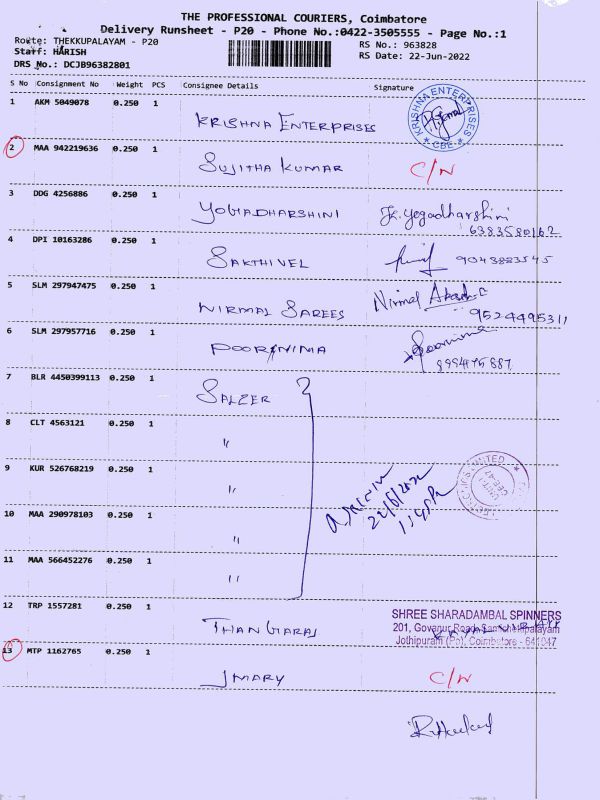 THE PROFESSIONAL COURIERS, Coimbatore
Delivery Runsheet - P20 - Phone No.:0422-3505555 - Page No.:1
Route: THEKKUPALAYAM - P20
RS No.: 963828
Staff: HARISH
RS Date: 22-Jun-2022
DRS No.: DCJB96382801
S No Consignment No Weight PCS Consignee Details Signature
1 AKM 5049078 0.250 1
KRISHNA ENTERPRISES
KRISHNA ENTERPRISES
CBE
2 MAA 942219636 0.250 1
SUJITHA KUMAR C/N
3 DDG 4256886 0.250 1
YOGADHARSHINI Jk.Yogadharshini
6383580162
4 DPI 10163286 0.250 1
SAKTHIVEL 9043883545
5 SLM 297947475 0.250 1
NIRMAL SAREES Nirmal
9524495311
6 SLM 297957716 0.250 1
POORNIMA Poornima
7 BLR 4450399113 0.250 1
SALZER
8 CLT 4563121 0.250 1
"
9 KUR 526768219 0.250 1
"
22/6/2022
10 MAA 290978103 0.250 1
"
11 MAA 566452276 0.250 1
"
12 TRP 1557281 0.250 1
THANGARAJ
SHREE SHARADAMBAL SPINNERS
201, Govanur Road, Samichettipalayam
Jothipuram (Po), Coimbatore - 641047
13 MTP 1162765 0.250 1
J MARY C/N